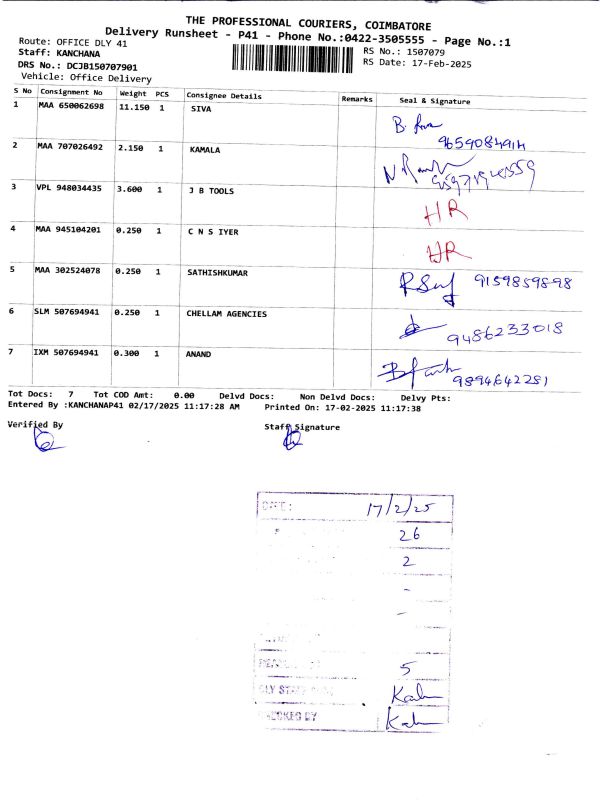 THE PROFESSIONAL COURIERS, COIMBATORE
Delivery Runsheet - P41 - Phone No.:0422-3505555 - Page No.:1
Route: OFFICE DLY 41
Staff: KANCHANA
RS No.: 1507079
DRS No.: DCJB150707901
RS Date: 17-Feb-2025
Vehicle: Office Delivery
S No Consignment No Weight PCS Consignee Details Remarks Seal & Signature
1 MAA 650062698 11.150 1 SIVA
2 MAA 707026492 2.150 1 KAMALA
3 VPL 948034435 3.600 1 J B TOOLS HR
4 MAA 945104201 0.250 1 C N S IYER HR
5 MAA 302524078 0.250 1 SATHISHKUMAR 9159859898
6 SLM 507694941 0.250 1 CHELLAM AGENCIES 9486233018
7 IXM 507694941 0.300 1 ANAND 9894642281
Tot Docs: 7 Tot COD Amt: 0.00 Delvd Docs: Non Delvd Docs: Delvy Pts:
Entered By :KANCHANAP41 02/17/2025 11:17:28 AM Printed On: 17-02-2025 11:17:38
Verified By Staff Signature
DATE: 17/2/25
26
2
-
-
5
DLY STAFF
CHECKED BY